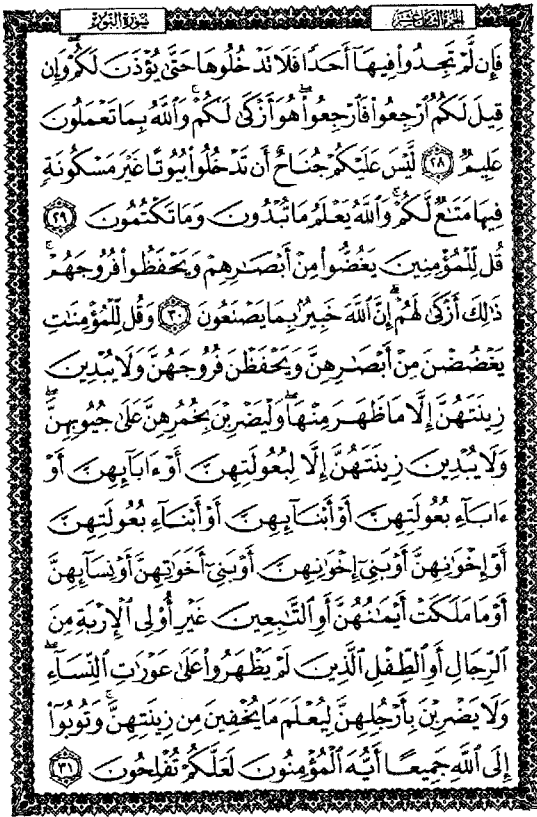 الجزء الثامن عشر سورة النور
فَإِن لَّمْ تَجِدُوا۟ فِيهَآ أَحَدًا فَلَا تَدْخُلُوهَا حَتَّىٰ يُؤْذَنَ لَكُمْ ۖ وَإِن
قِيلَ لَكُمُ ٱرْجِعُوا۟ فَٱرْجِعُوا۟ ۖ هُوَ أَزْكَىٰ لَكُمْ ۚ وَٱللَّهُ بِمَا تَعْمَلُونَ
عَلِيمٌ ٢٨ لَّيْسَ عَلَيْكُمْ جُنَاحٌ أَن تَدْخُلُوا۟ بُيُوتًا غَيْرَ مَسْكُونَةٍ
فِيهَا مَتَٰعٌ لَّكُمْ ۚ وَٱللَّهُ يَعْلَمُ مَا تُبْدُونَ وَمَا تَكْتُمُونَ ٢٩
قُل لِّلْمُؤْمِنِينَ يَغُضُّوا۟ مِنْ أَبْصَٰرِهِمْ وَيَحْفَظُوا۟ فُرُوجَهُمْ ۚ
ذَٰلِكَ أَزْكَىٰ لَهُمْ ۗ إِنَّ ٱللَّهَ خَبِيرٌۢ بِمَا يَصْنَعُونَ ٣٠ وَقُل لِّلْمُؤْمِنَٰتِ
يَغْضُضْنَ مِنْ أَبْصَٰرِهِنَّ وَيَحْفَظْنَ فُرُوجَهُنَّ وَلَا يُبْدِينَ
زِينَتَهُنَّ إِلَّا مَا ظَهَرَ مِنْهَا ۖ وَلْيَضْرِبْنَ بِخُمُرِهِنَّ عَلَىٰ جُيُوبِهِنَّ ۖ
وَلَا يُبْدِينَ زِينَتَهُنَّ إِلَّا لِبُعُولَتِهِنَّ أَوْ ءَابَآئِهِنَّ أَوْ
ءَابَآءِ بُعُولَتِهِنَّ أَوْ أَبْنَآئِهِنَّ أَوْ أَبْنَآءِ بُعُولَتِهِنَّ
أَوْ إِخْوَٰنِهِنَّ أَوْ بَنِىٓ إِخْوَٰنِهِنَّ أَوْ بَنِىٓ أَخَوَٰتِهِنَّ أَوْ نِسَآئِهِنَّ
أَوْ مَا مَلَكَتْ أَيْمَٰنُهُنَّ أَوِ ٱلتَّٰبِعِينَ غَيْرِ أُو۟لِى ٱلْإِرْبَةِ مِنَ
ٱلرِّجَالِ أَوِ ٱلطِّفْلِ ٱلَّذِينَ لَمْ يَظْهَرُوا۟ عَلَىٰ عَوْرَٰتِ ٱلنِّسَآءِ ۖ
وَلَا يَضْرِبْنَ بِأَرْجُلِهِنَّ لِيُعْلَمَ مَا يُخْفِينَ مِن زِينَتِهِنَّ ۚ وَتُوبُوٓا۟
إِلَى ٱللَّهِ جَمِيعًا أَيُّهَ ٱلْمُؤْمِنُونَ لَعَلَّكُمْ تُفْلِحُونَ ٣١